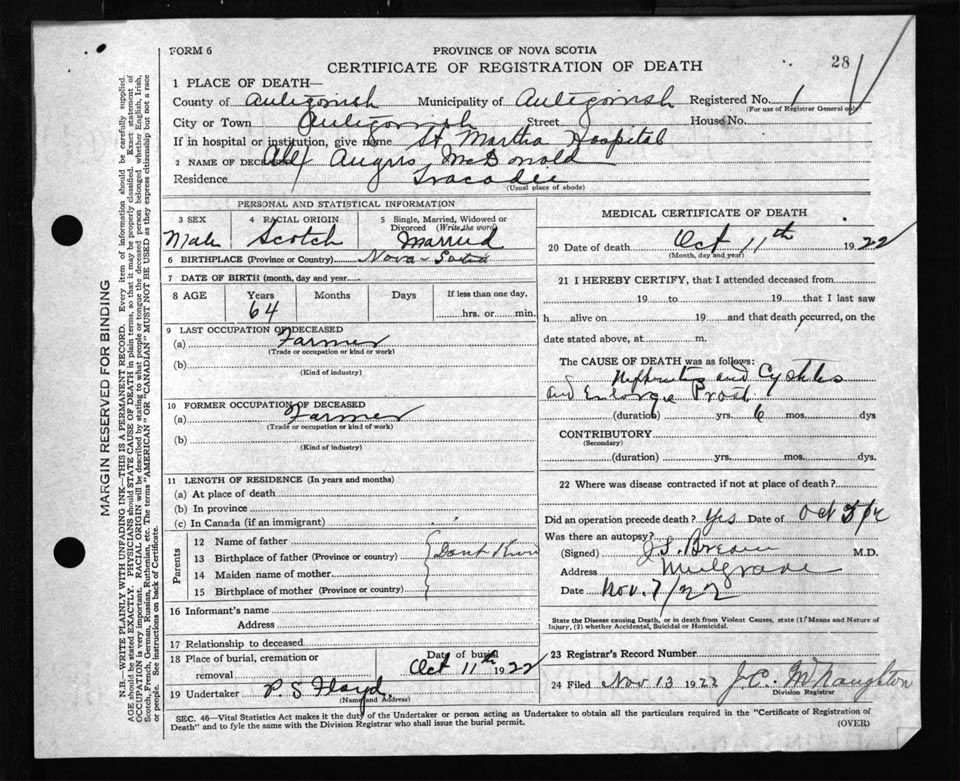 FORM 6
PROVINCE OF NOVA SCOTIA
CERTIFICATE OF REGISTRATION OF DEATH
28
1 PLACE OF DEATH—
County of Antigonish Municipality of Antigonish Registered No. 1
(For use of Registrar General only)
City or Town Antigonish Street House No.
If in hospital or institution, give name St. Martha Hospital
2 NAME OF DECEASED Angus McDonald
Residence Tracadie
(Usual place of abode)
PERSONAL AND STATISTICAL INFORMATION
3 SEX
Male
4 RACIAL ORIGIN
Scotch
5 Single, Married, Widowed or Divorced (Write the word)
Married
6 BIRTHPLACE (Province or Country) Nova Scotia
7 DATE OF BIRTH (month, day and year)
8 AGE Years Months Days If less than one day,
64 hrs. or min.
9 LAST OCCUPATION OF DECEASED
(a) Farmer
(Trade or occupation or kind or work)
(b)
(Kind of industry)
10 FORMER OCCUPATION OF DECEASED
(a) Farmer
(Trade or occupation or kind of work)
(b)
(Kind of industry)
11 LENGTH OF RESIDENCE (In years and months)
(a) At place of death
(b) In province
(c) In Canada (if an immigrant)
Parents
12 Name of father
13 Birthplace of father (Province or country) Dont Know
14 Maiden name of mother
15 Birthplace of mother (Province or country)
16 Informant's name
Address
17 Relationship to deceased
18 Place of burial, cremation or removal
Date of burial
Oct 11th 1922
19 Undertaker P. S. Floyd.
(Name and Address)
MEDICAL CERTIFICATE OF DEATH
20 Date of death Oct 11th 1922
(Month, day and year)
21 I HEREBY CERTIFY, that I attended deceased from
19 to 19 that I last saw
h alive on 19 and that death occurred, on the
date stated above, at m.
The CAUSE OF DEATH was as follows:
and Cystitis
and Enlarge Prost
(duration) yrs. 6 mos. dys
CONTRIBUTORY
(Secondary)
(duration) yrs. mos. dys.
22 Where was disease contracted if not at place of death?
Did an operation precede death? Yes Date of Oct
Was there an autopsy?
(Signed) M.D.
Address Mulgrave
Date Nov. 7/22
State the Disease causing Death, or in death from Violent Causes, state (1) Means and Nature of
Injury, (2) whether Accidental, Suicidal or Homicidal.
23 Registrar's Record Number
24 Filed Nov 13 1922 J.C. McNaughton
Division Registrar
SEC. 46—Vital Statistics Act makes it the duty of the Undertaker or person acting as Undertaker to obtain all the particulars required in the "Certificate of Registration of
Death" and to fyle the same with the Division Registrar who shall issue the burial permit.
(OVER)
MARGIN RESERVED FOR BINDING
N.B.—WRITE PLAINLY WITH UNFADING INK—THIS IS A PERMANENT RECORD. Every item of information should be carefully supplied.
AGE should be stated EXACTLY. PHYSICIANS should STATE CAUSE OF DEATH in plain terms, so that it may be properly classified. Exact statement of
OCCUPATION is very important. RACIAL ORIGIN will be described by stating to what people or tongue the deceased person belonged whether English, Irish,
Scotch, French, German, Russian, Ruthenian, etc. The terms "AMERICAN" OR "CANADIAN" MUST NOT BE USED as they express citizenship but not a race
or people. See instructions on back of Certificate.